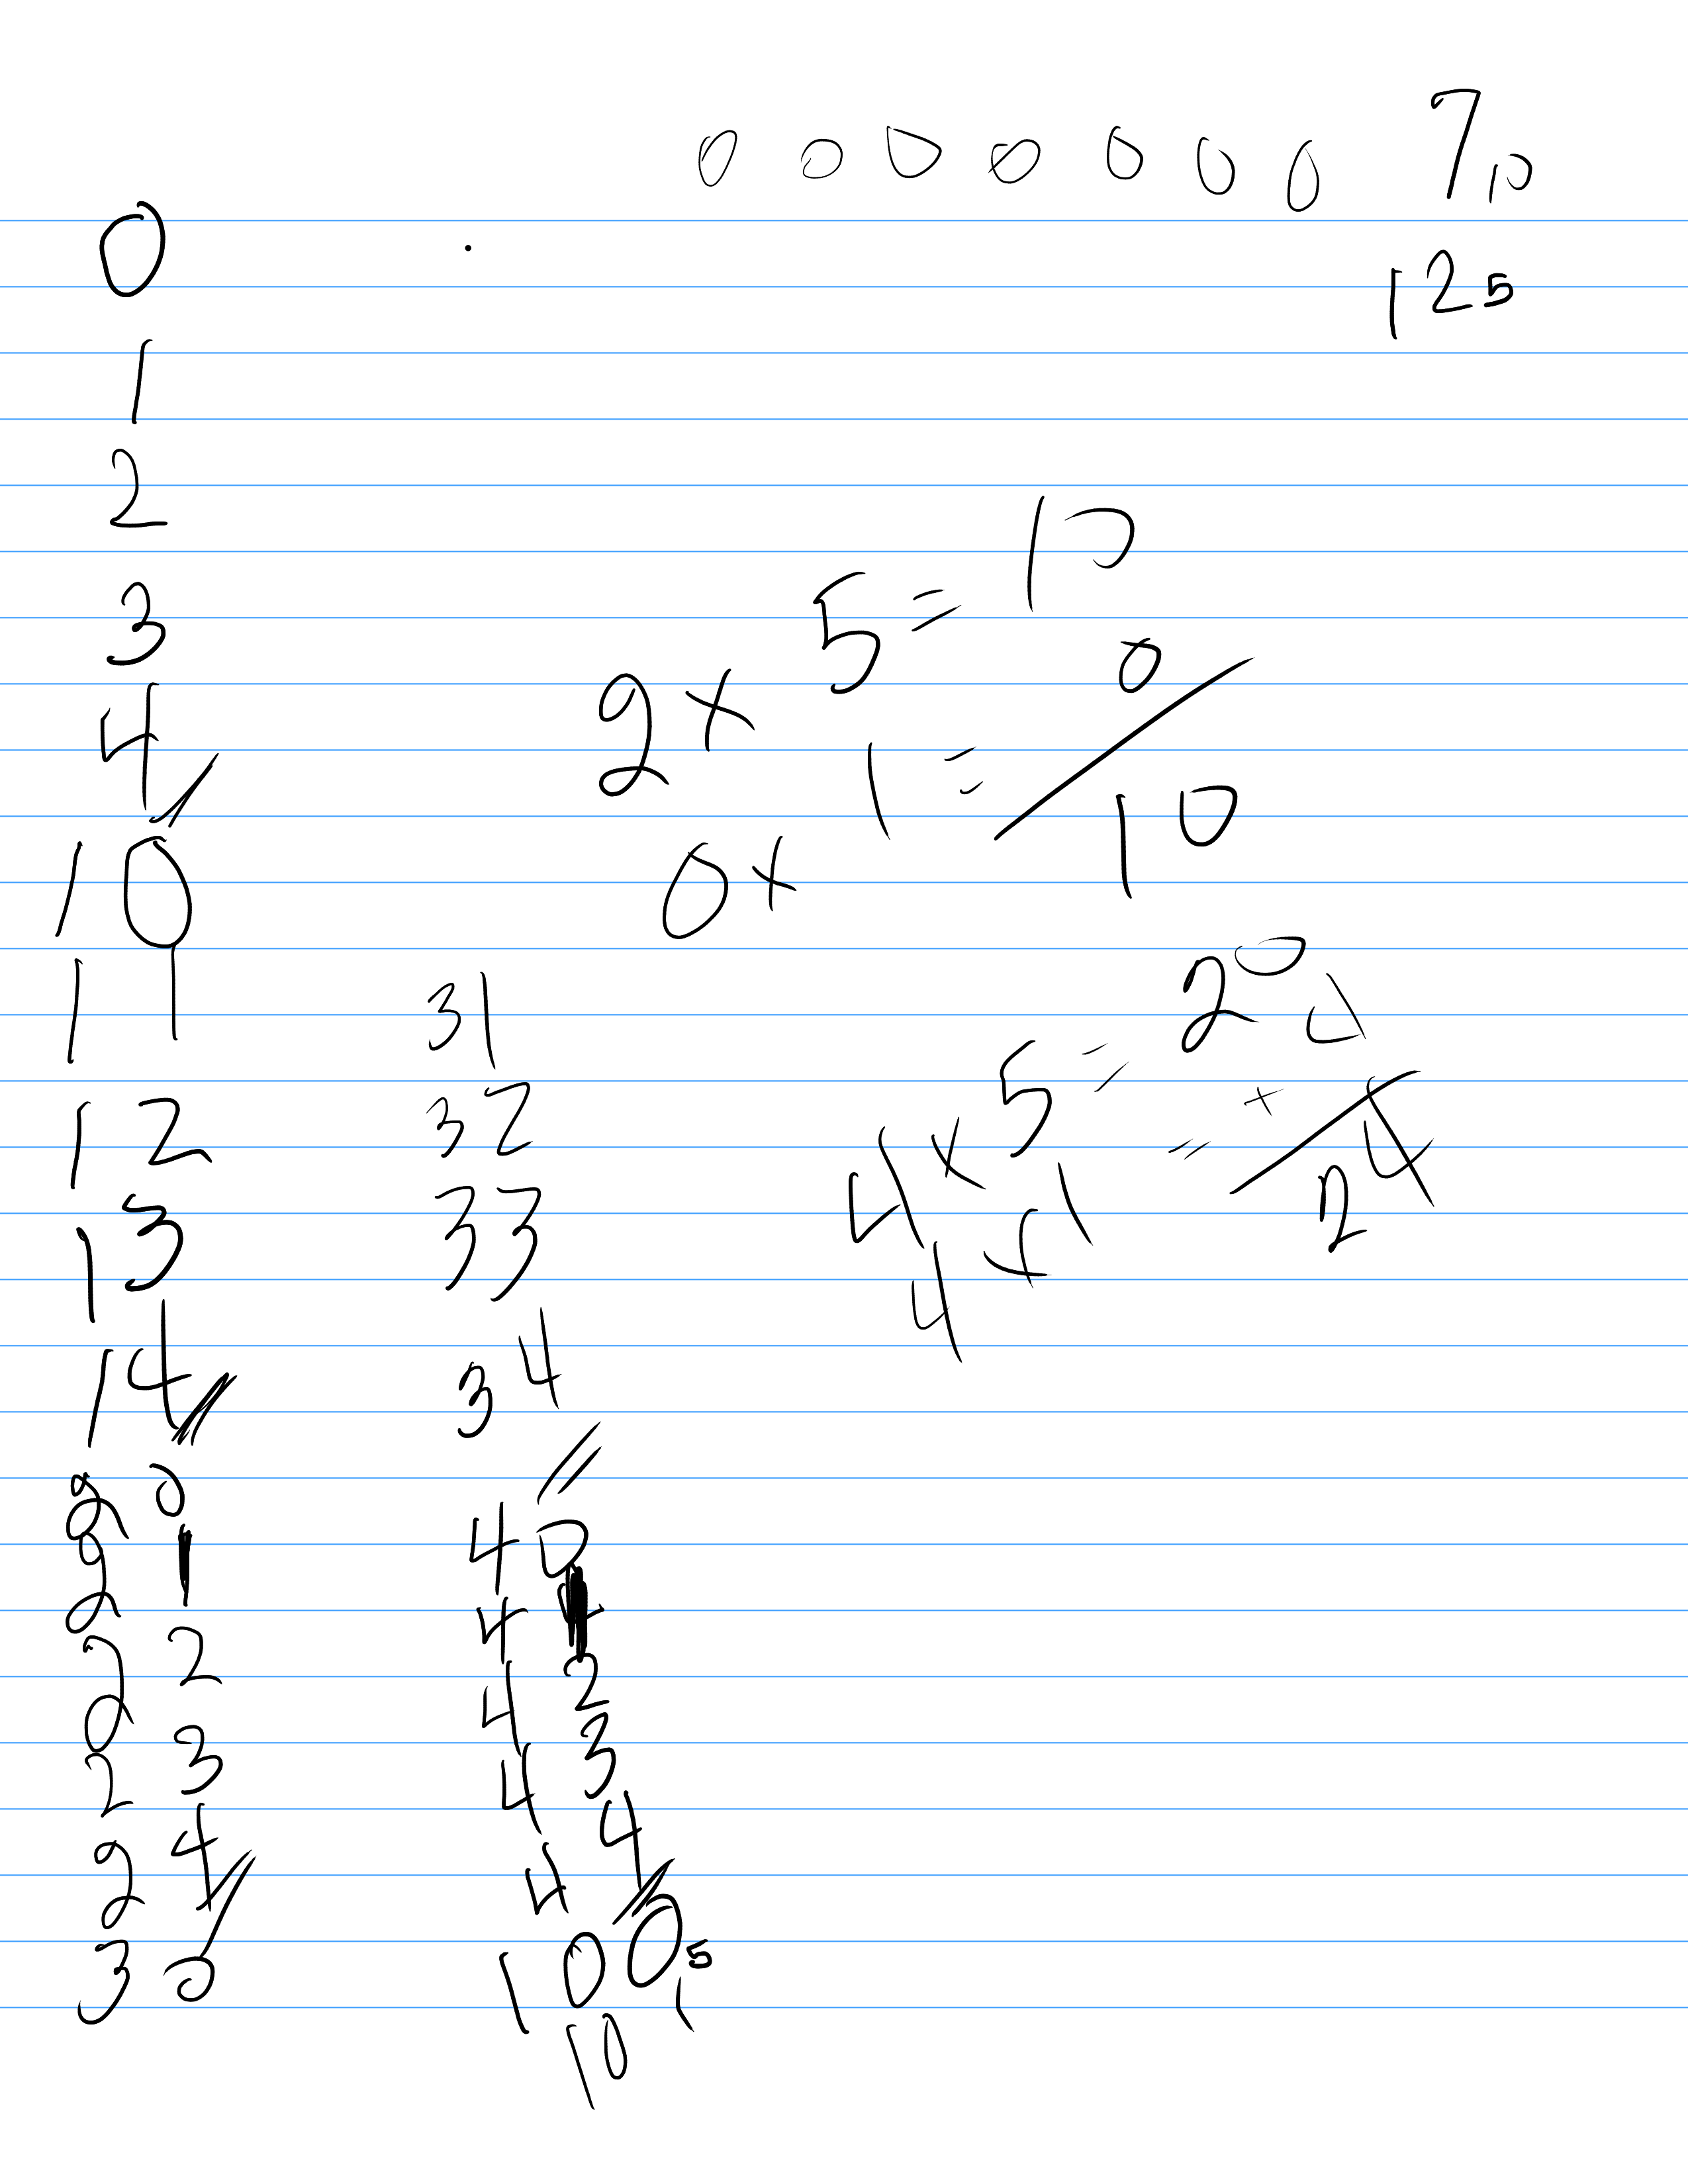 0 0 0 0 0 0 0 7₁₀
12₅
0
1
2
3
4
10
11
12
13
14
20
21
22
23
24
30
31
32
33
34
40
41
42
43
44
100₅
101
2 x 5 = 10
0 x 1 = 0
10
4 x 5 = 20
4 x 1 = + 4
24